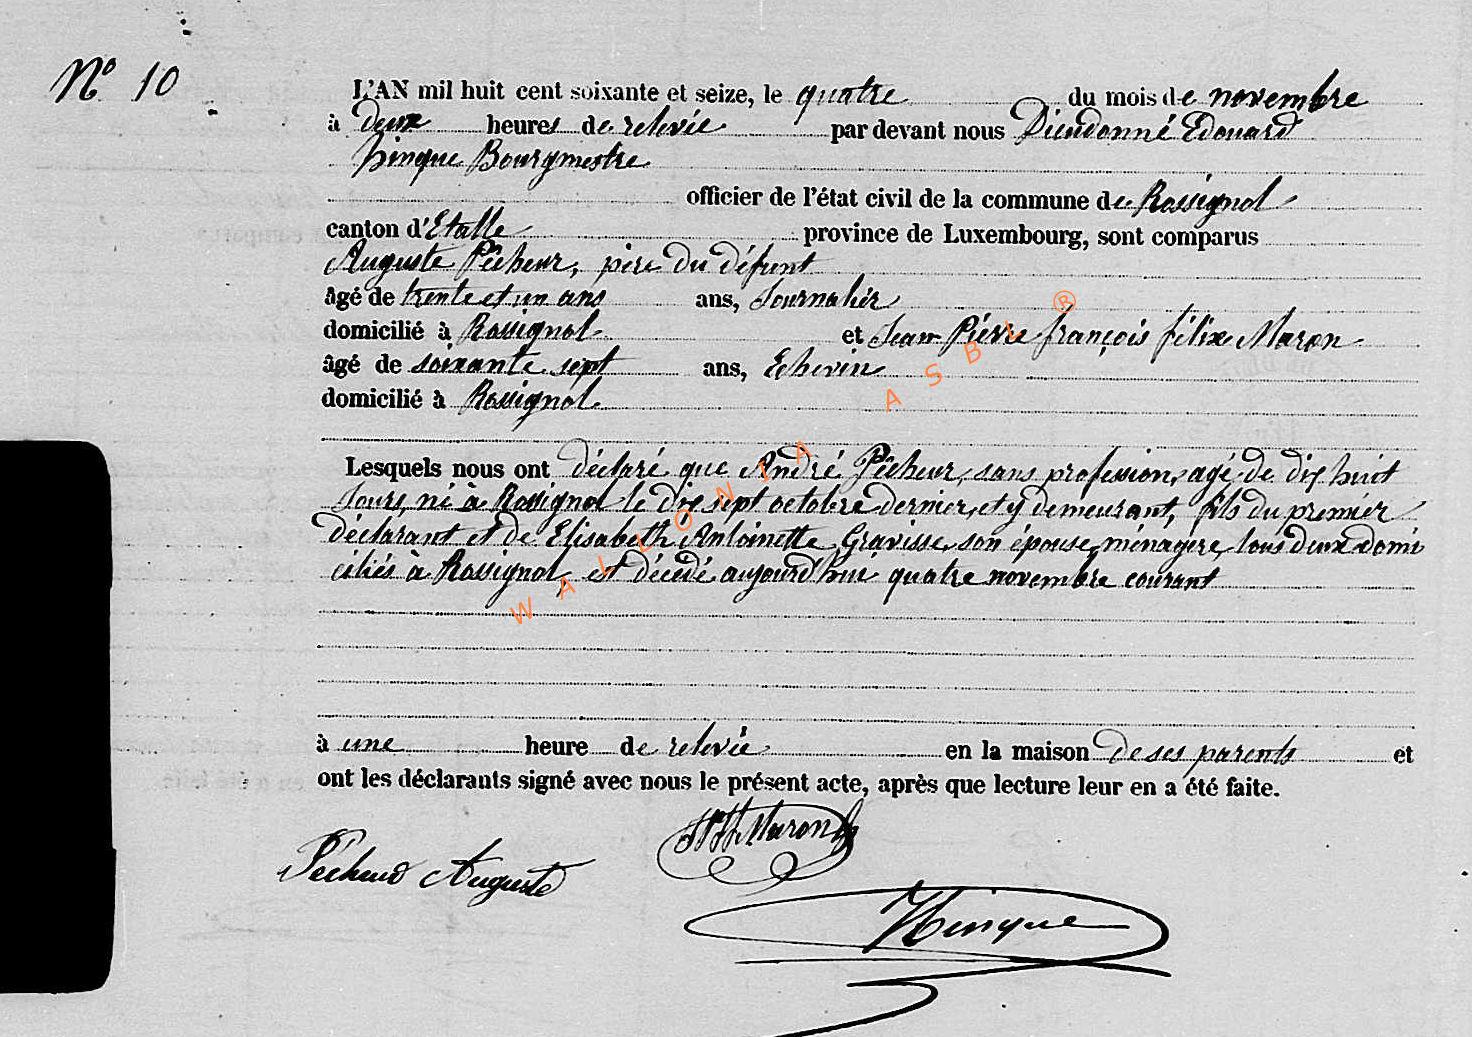 N° 10
L'AN mil huit cent soixante et seize, le quatre du mois de novembre
à deux heures de relevée par devant nous Dieudonné Edouard
hinque Bourgmestre
officier de l'état civil de la commune de Rossignol
canton d'Etalle province de Luxembourg, sont comparus
Auguste Pêcheur, père du défunt
âgé de trente et un ans ans, Journalier
domicilié à Rossignol et Jean Pierre françois félix Maron
âgé de soixante sept ans, Echevin
domicilié à Rossignol
Lesquels nous ont déclaré que André Pêcheur, sans profession, agé de dix huit
Jours, né à Rossignol le dix sept octobre dernier, et y demeurant, fils du premier
déclarant et de Elisabeth Antoinette Gravisse, son épouse, ménagère, tous deux domi
ciliés à Rossignol, est décédé aujourd'hui quatre novembre courant
à une heure de relevée en la maison de ses parents et
ont les déclarants signé avec nous le présent acte, après que lecture leur en a été faite.
Maron
Pêcheur Auguste
Hinque
WALLONIA ASBL ®